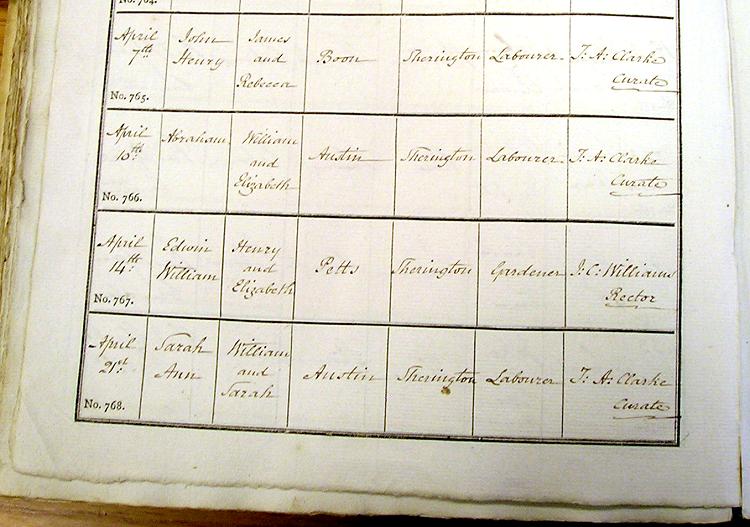 No. 764.
April 7th
John Henry
James and Rebecca
Boon
Sherington
Labourer
T: A: Clarke
Curate
No. 765.
April 10th
Abraham
William and Elizabeth
Austin
Sherington
Labourer
T: A: Clarke
Curate
No. 766.
April 14th
Edwin William
Henry and Elizabeth
Petts
Sherington
Gardener
J: C: Williams
Rector
No. 767.
April 21st
Sarah Ann
William and Sarah
Austin
Sherington
Labourer
T: A: Clarke
Curate
No. 768.